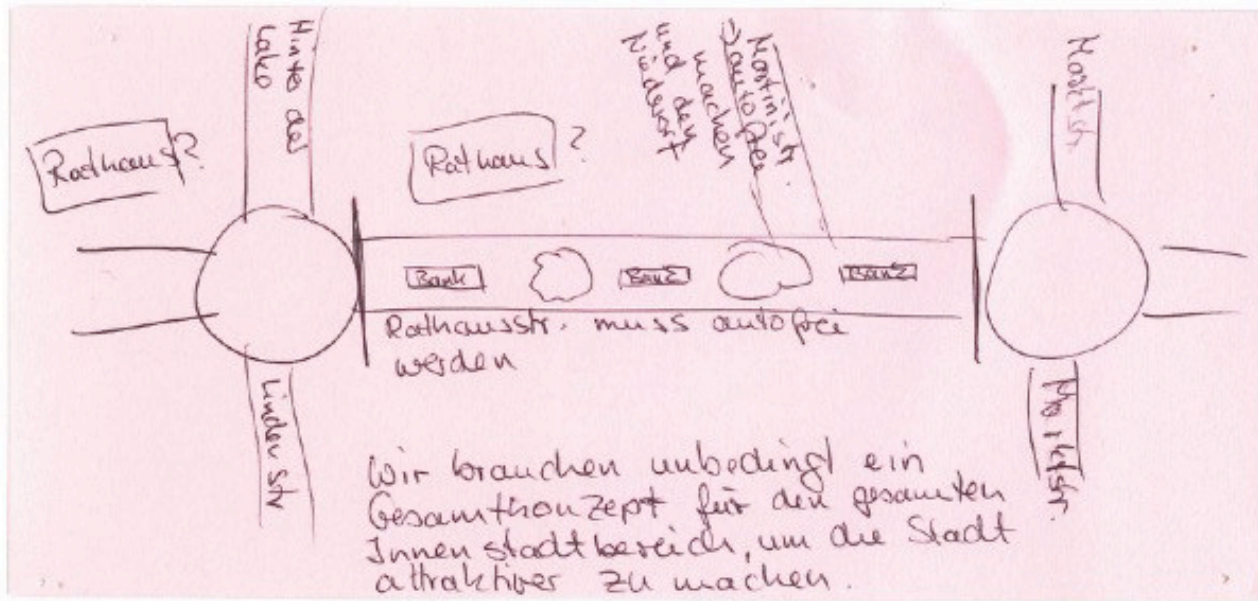 Hinter der
Rathaus?
Rathaus?
Martinistr.
autofrei
machen
und den
Marktstr
Bank
Bank
Bank
Rathausstr. muss autofrei
werden
Linden str
Marktstr.
Wir brauchen unbedingt ein
Gesamtkonzept für den gesamten
Innenstadtbereich, um die Stadt
attraktiver zu machen.